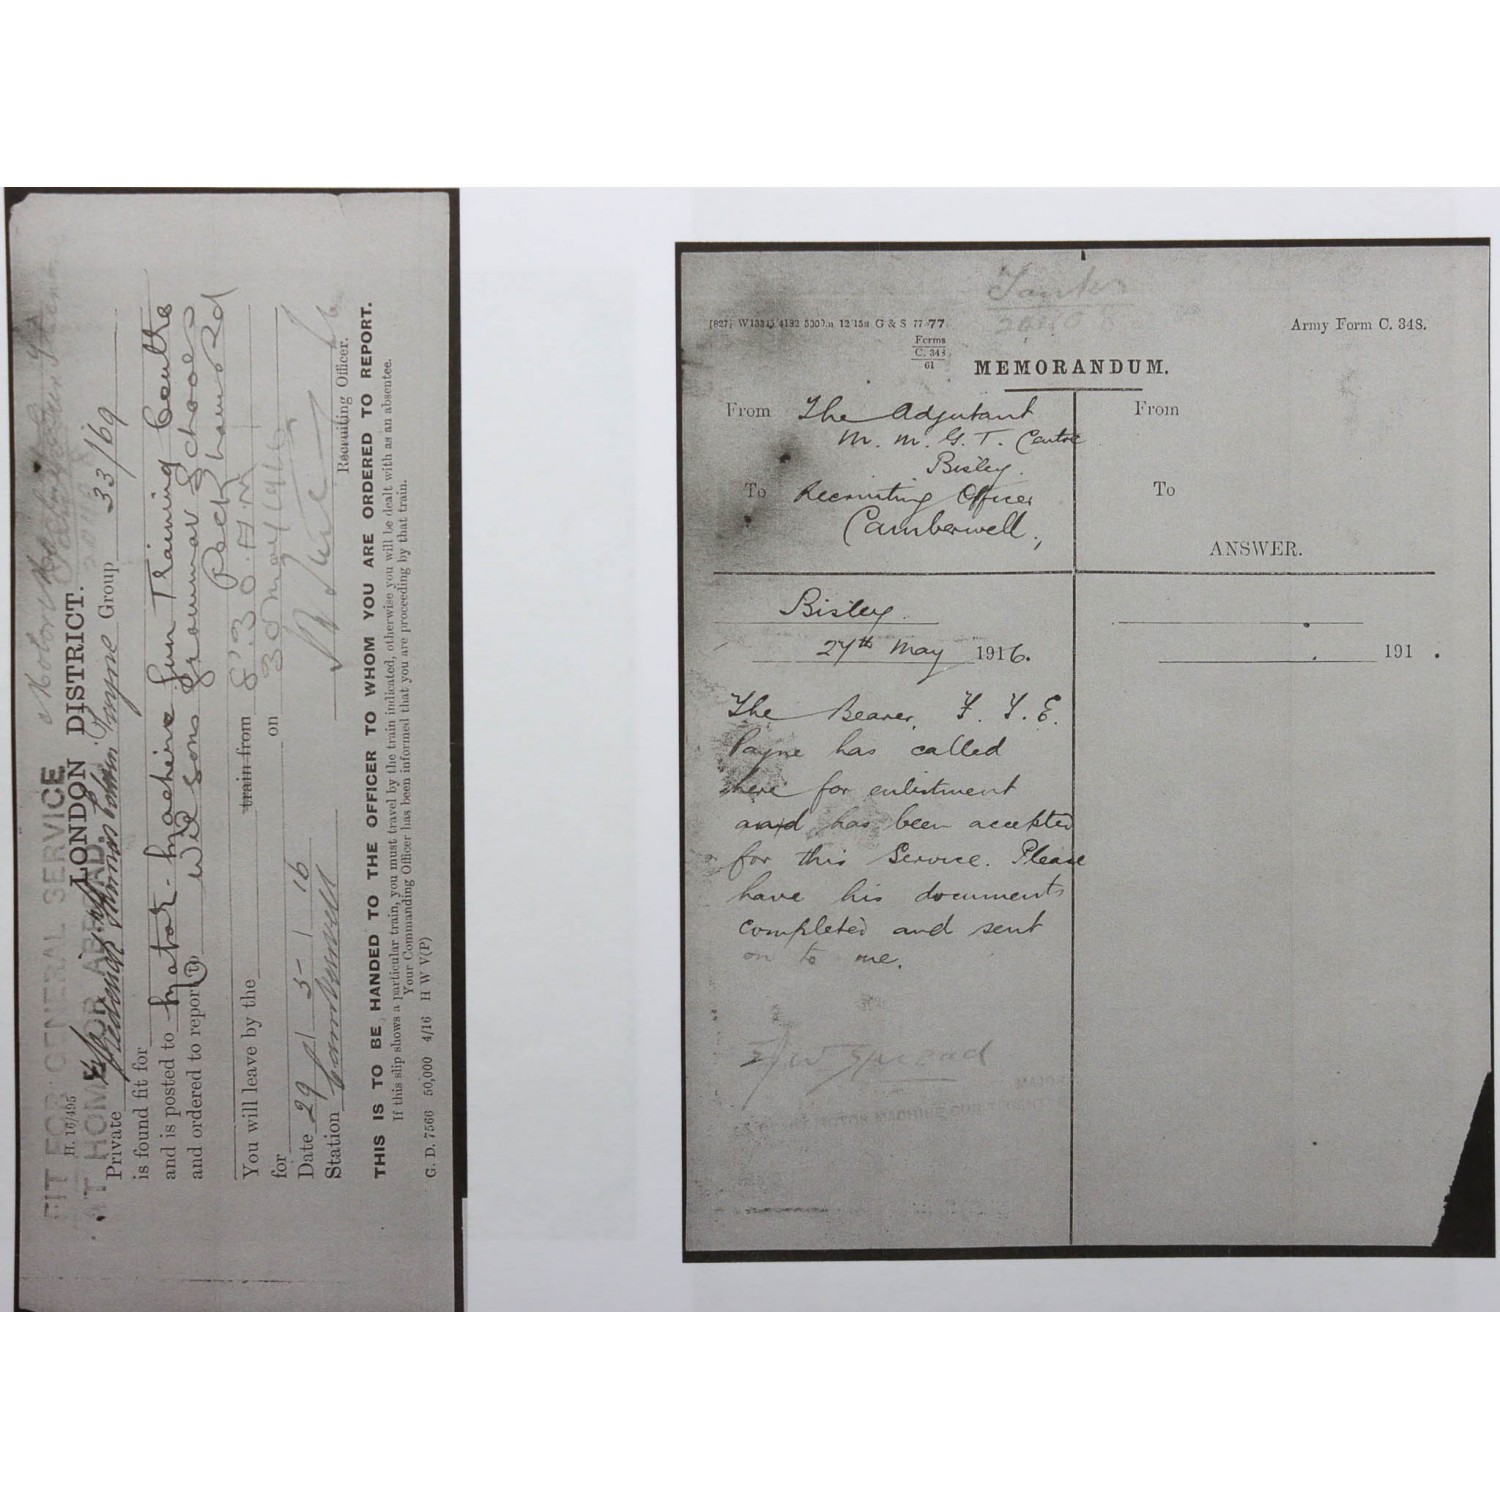 FIT FOR GENERAL SERVICE
AT HOME OR ABROAD.
H. 16/495
LONDON DISTRICT.
Private Payne Group 33/69
is found fit for
and is posted to Motor-Machine Gun Training Centre
and ordered to report Wilsons Grammar School
Peckham Rd
You will leave by the train from 8.30. A.M.
for on 30 May 1916
Date 29/5/16
Station Camberwell
Recruiting Officer.
THIS IS TO BE HANDED TO THE OFFICER TO WHOM YOU ARE ORDERED TO REPORT.
If this slip shows a particular train, you must travel by the train indicated, otherwise you will be dealt with as an absentee.
Your Commanding Officer has been informed that you are proceeding by that train.
G. D. 7566 50,000 4/16 H W V(P)
Tanks
G & S 77 77
Army Form C. 348.
Forms
C. 348
61
MEMORANDUM.
From The Adjutant
M. M. G. T. Centre
Bisley.
To Recruiting Officer
Camberwell.,
From
To
ANSWER.
Bisley.
27th May 1916.
191 .
The Bearer, F. T. E.
Payne has called
here for enlistment
and has been accepted
for this Service. Please
have his documents
completed and sent
on to me.
MAJOR
MOTOR MACHINE GUN